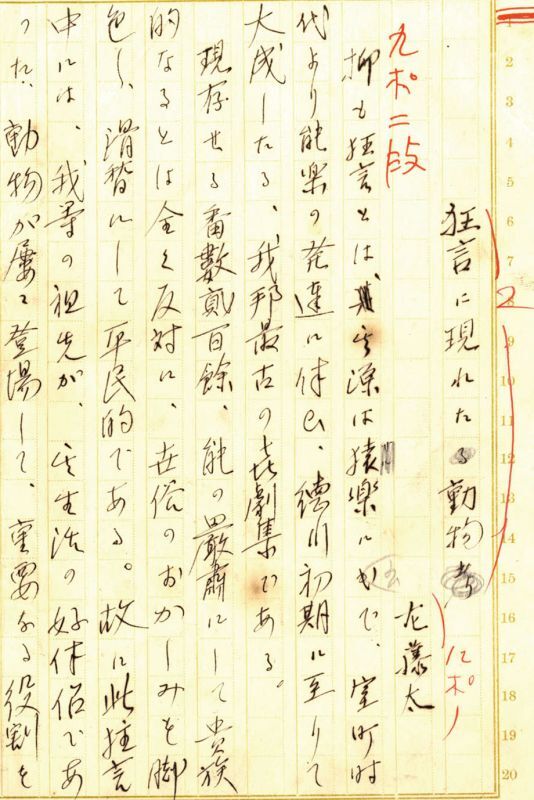 狂言に現れたる動物考
藤太
12ポ
2
九ポ二段
抑も狂言とは、其源は猿樂に出で、室町時
代より能樂の発達に伴ひ、德川初期に至りて
大成したる、我邦最古の喜劇集である。
現存せる番數貳百餘、能の嚴肅にして貴族
的なるとは全く反対に、世俗のおかしみを脚
色し、滑稽にして平民的である。故に此狂言
中には、我等の祖先が、其生活の好伴侶であ
つた、動物が屢々登場して、重要なる役割を
1
2
3
4
5
6
7
9
10
11
12
13
14
15
16
17
18
19
20